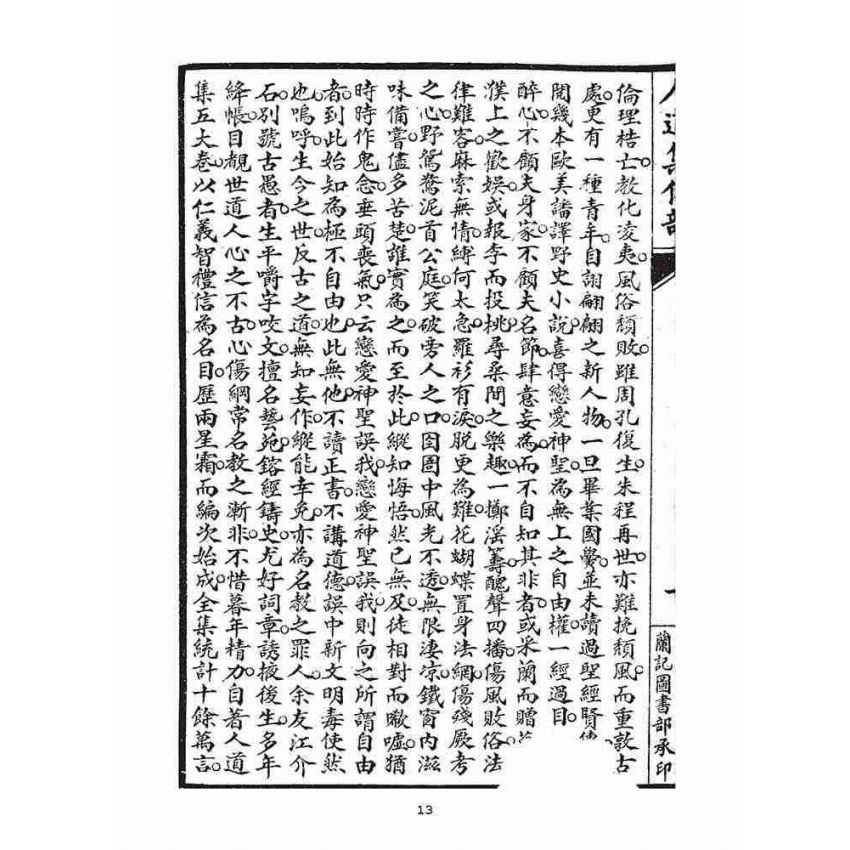 倫理梏亡。教化凌夷。風俗頹敗。雖周孔復生。朱程再世。亦難挽頹風。而重敦古
處。更有一種青年。自詡翩翩之新人物。一旦畢業國黌。並未讀過聖經賢
閱幾本歐美譒譯野史小說。喜得戀愛神聖為無上之自由權。一經過目。
醉心。不顧夫身家。不顧夫名節。肆意妄為。而不自知其非者。或采蘭而贈
濮上之歡娛。或報李而投桃。尋桑間之樂趣。一擲淫籌。醜聲四播。傷風敗俗。法
律難容。麻索無情。縛何太急。羅衫有淚。脫更為難。花蝴蝶置身法網。傷殘厥考
之心。野鴛鴦泥首公庭。笑破旁人之口。囹圄中風光不透。無限淒凉。鐵窗內滋
味備嘗。儘多苦楚。誰實為之。而至於此。縱知悔悟。然已無及。徒相對而歔噓。猶
時時作鬼念。垂頭喪氣。只云戀愛神聖誤我。戀愛神聖誤我。則向之所謂自由
者。到此始知為極不自由也。此無他。不讀正書。不講道德。誤中新文明毒使然
也。嗚呼。生今之世。反古之道。無知妄作。縱能幸免。亦為名教之罪人。余友江介
石。別號古愚者。生平嚼字咬文。擅名藝苑。鎔經鑄史。尤好詞章。誘掖後生。多年
絳帳。目覩世道人心之不古。心傷綱常名教之漸非。不惜暮年精力。自著人道
集五大卷。以仁義智禮信為名目。歷兩星霜。而編次始成。全集統計十餘萬言。
蘭記圖書部承印
13